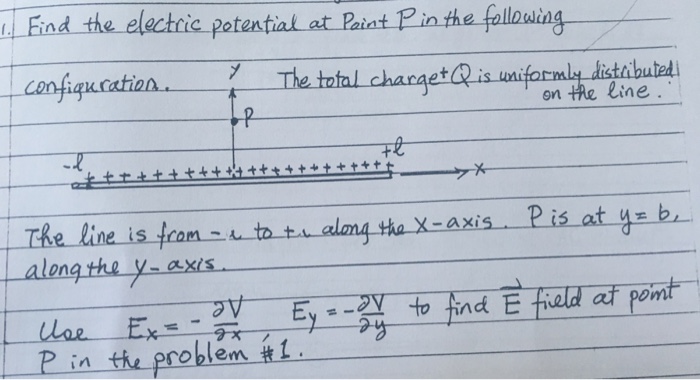 1. Find the electric potential at Point P in the following
configuration. The total charge +Q is uniformly distributed
on the line.
y
P
-l
+l
+ + + + + + + + + + + + + + + + + + + + + + + + +
x
The line is from - to + along the x-axis. P is at y = b,
along the y-axis.
Use Ex = - ∂V/∂x , Ey = - ∂V/∂y to find E⃗ field at point
P in the problem #1.